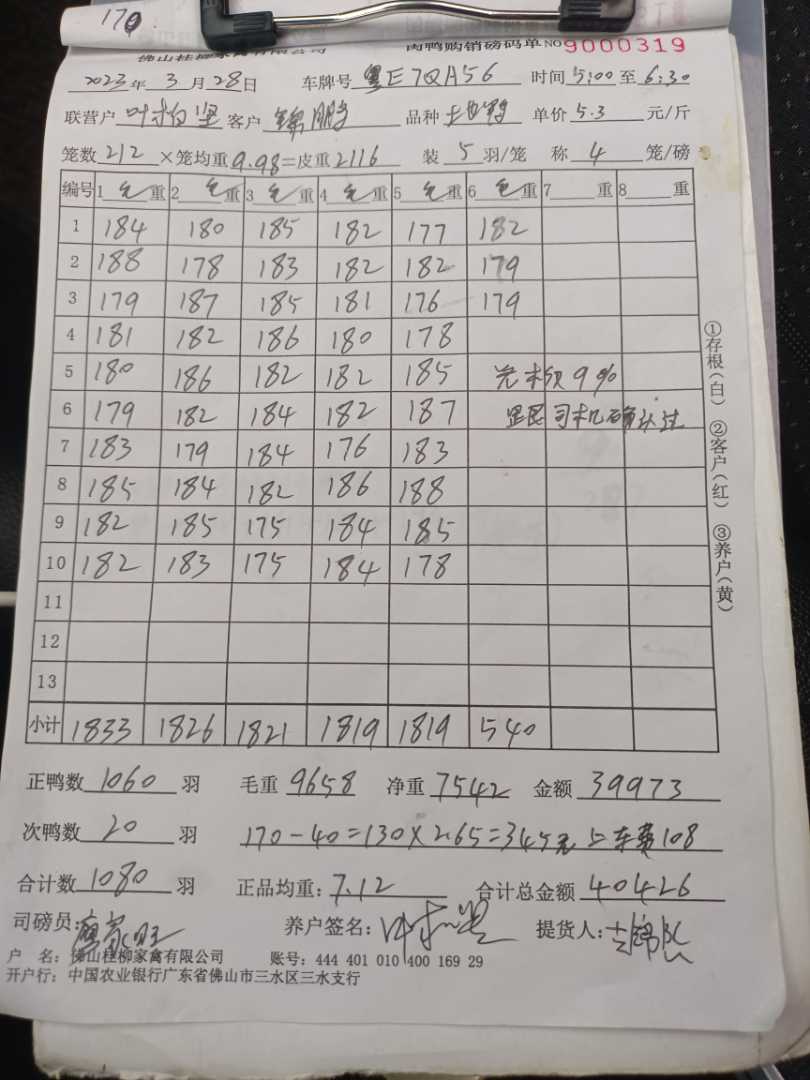 170
佛山桂柳家禽有限公司 肉鸭购销磅码单 NO 9000319
2023年 3月 28日 车牌号 粤E7QA56 时间 5:00 至 6:30
联营户 叶柏坚 客户 锦鹏 品种 土鸭 单价 5.3 元/斤
笼数 212 ×笼均重 9.98=皮重 2116 装 5 羽/笼 称 4 笼/磅
编号 1 毛重 2 毛重 3 毛重 4 毛重 5 毛重 6 毛重 7 重 8 重
1 184 180 185 182 177 182
2 188 178 183 182 182 179
3 179 187 185 181 176 179
4 181 182 186 180 178
5 180 186 182 182 185 9%
6 179 182 184 182 187 司机确认过
7 183 179 184 176 183
8 185 184 182 186 188
9 182 185 175 184 185
10 182 183 175 184 178
11
12
13
小计 1833 1826 1821 1819 1819 540
正鸭数 1060 羽 毛重 9658 净重 7542 金额 39973
次鸭数 20 羽 170-40=130×2.65=345元 车费108
合计数 1080 羽 正品均重: 7.12 合计总金额 40426
司磅员: 养户签名: 提货人:
户 名: 佛山桂柳家禽有限公司 账号: 444 401 010 400 169 29
开户行: 中国农业银行广东省佛山市三水区三水支行
①存根(白) ②客户(红) ③养户(黄)